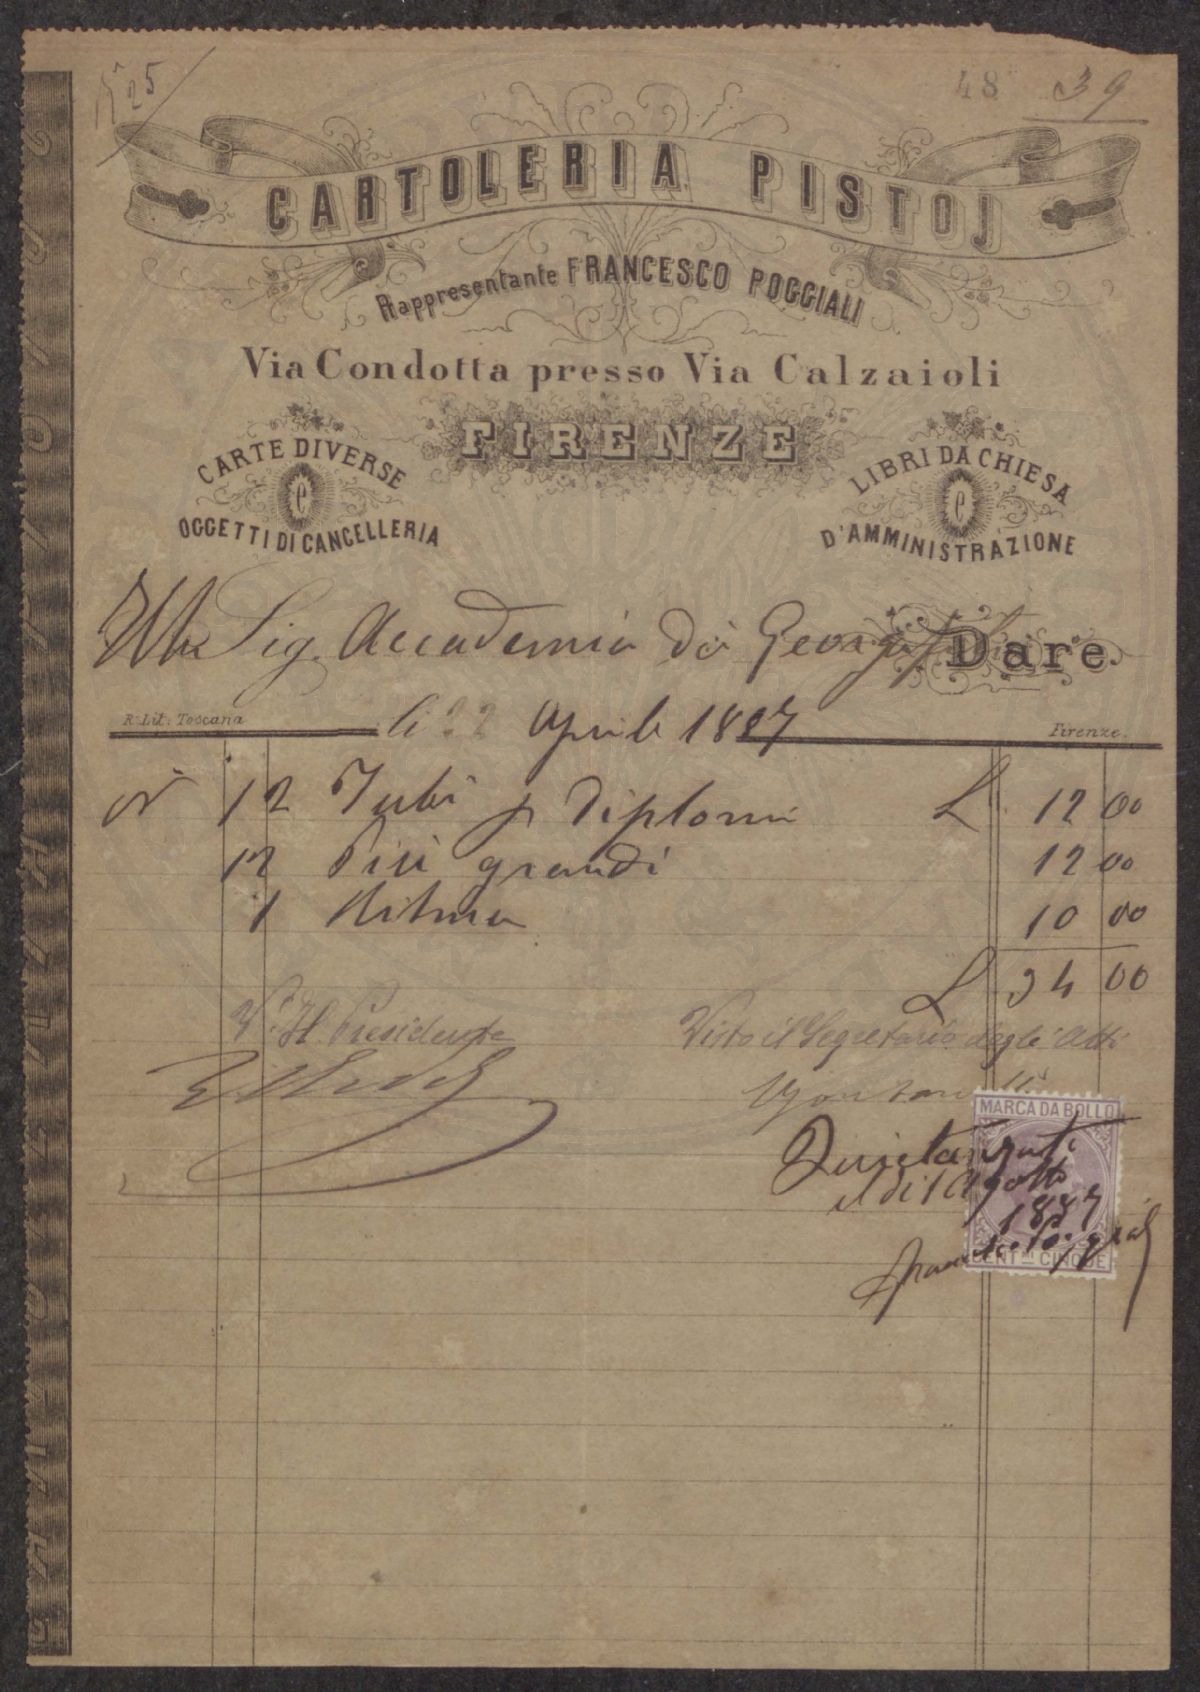 N° 25
48 39
CARTOLERIA PISTOJ
Rappresentante FRANCESCO POGGIALI
Via Condotta presso Via Calzaioli
FIRENZE
CARTE DIVERSE
e
OGGETTI DI CANCELLERIA
LIBRI DA CHIESA
e
D'AMMINISTRAZIONE
Sig. Accademia dei Georgofili Dare
R. Lit. Toscana
li 22 Aprile 1887
Firenze.
N° 12 Tubi p Diplomi L 12 00
12 Più grandi 12 00
1 10 00
L 34 00
V° Il Presidente
Visto il Segretario degli Atti
MARCA DA BOLLO
Quietanzati
il di 1 Agosto
1887
Francesco Poggiali
CENT.MI CINQUE